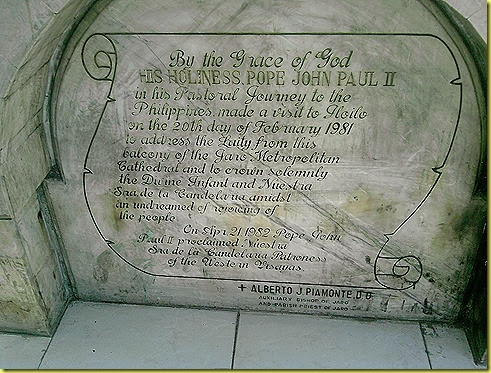 By the Grace of God
HIS HOLINESS POPE JOHN PAUL II
in his Pastoral Journey to the
Philippines, made a visit to Iloilo
on the 20th day of February 1981
to address the Laity from this
balcony of the Jaro Metropolitan
Cathedral and to crown solemnly
the Divine Infant and Nuestra
Sra de la Candelaria amidst
an undreamed of rejoicing of
the people.
On Apr. 21 1982 Pope John
Paul II proclaimed Nuestra
Sra de la Candelaria Patroness
of the Western Visayas.
+ ALBERTO J. PIAMONTE, D.D.
AUXILIARY BISHOP OF JARO
AND PARISH PRIEST OF JARO